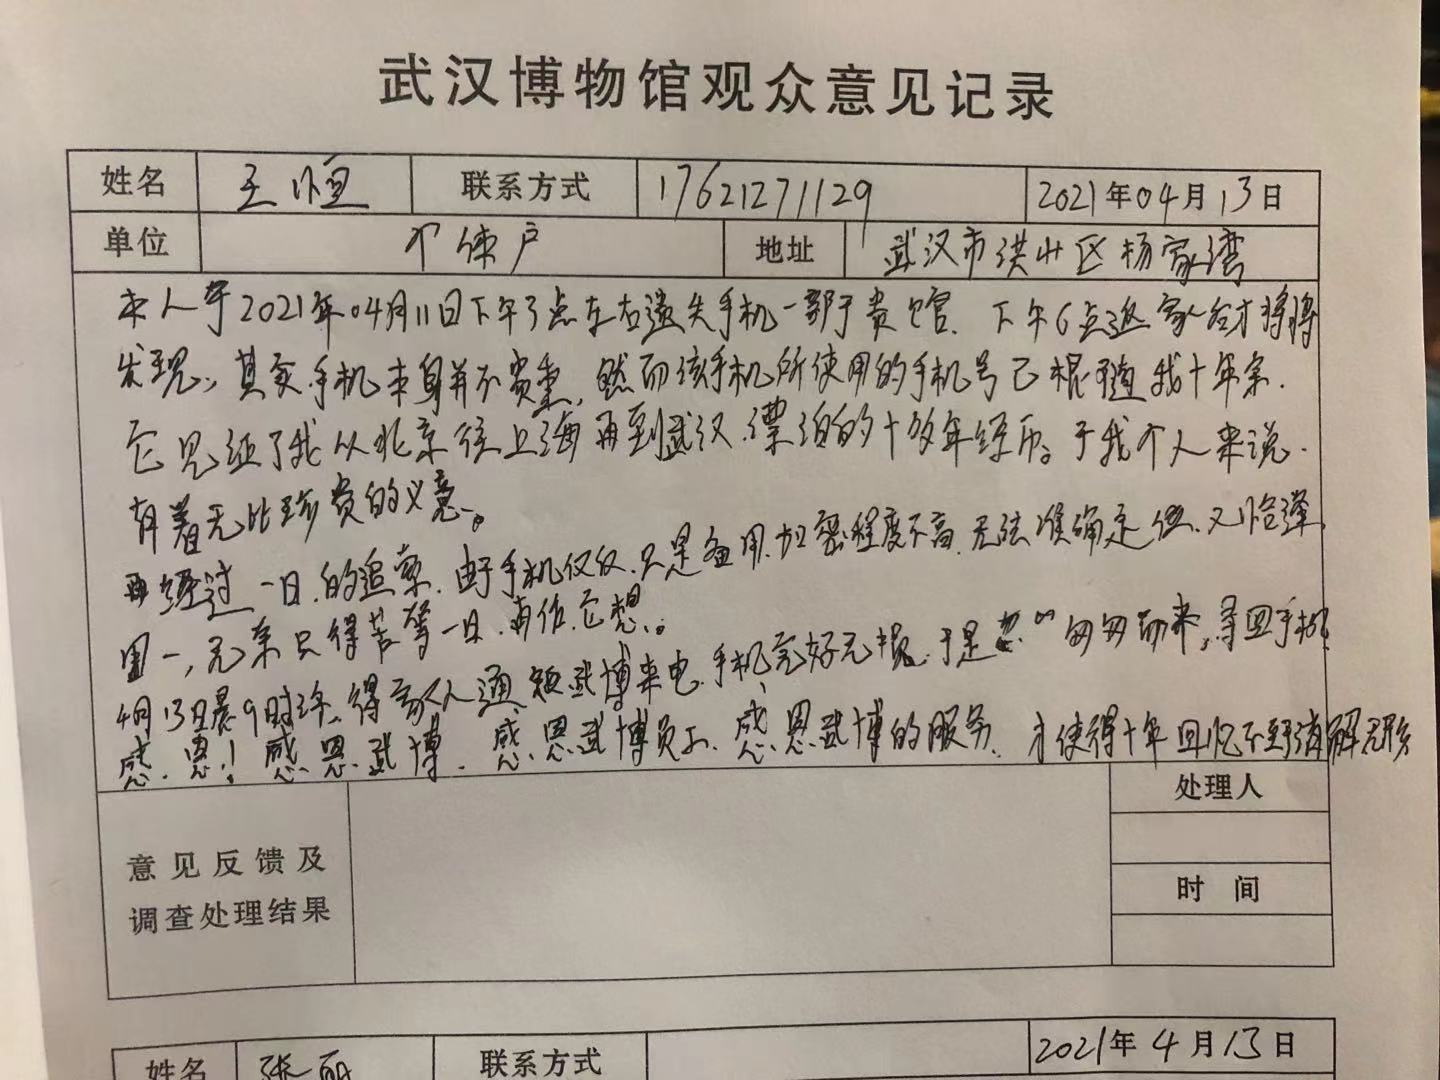 武汉博物馆观众意见记录
姓名 王恒 联系方式 17621271129 2021年04月13日
单位 个体户 地址 武汉市洪山区杨家湾
本人于2021年04月11日下午3点左右遗失手机一部于贵馆.下午6点返家后才将将
发现,其实手机本身并不贵重,然而该手机所使用的手机号已相随我十年余.
它见证了我从北京往上海再到武汉.漂泊的十多年经历。于我个人来说.
有着无比珍贵的意义。
再经过一日.的追索.由于手机仅仅.只是备用.加密程度不高.无法准确定位.又恰逢
周一,无奈只得苦等一日.再作它想。
4月13日晨9时许.得家人通知武博来电.手机完好无损.于是匆匆而来,寻回手机.
感.恩!感.恩武博.感.恩武博员工.感.恩武博的服务.才使得十年回忆不至消解无形
意见反馈及
调查处理结果
处理人
时 间
姓名 张丽 联系方式 2021年4月13日